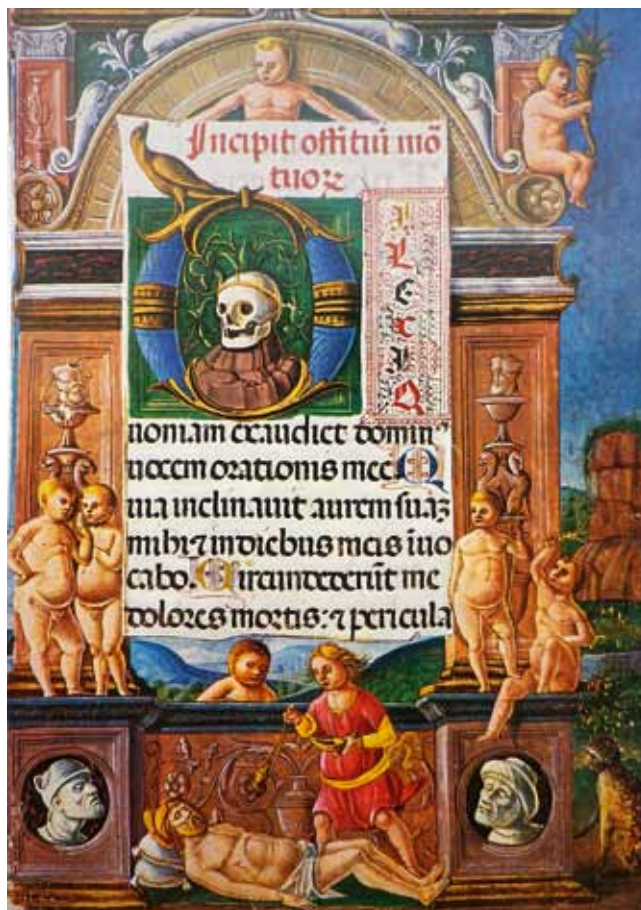 Incipit offitiū mō
tuoꝝ
D
I
L
E
X
I
Q
uoniam exaudiet domin⁹
uocem orationis mee. Q
uia inclinauit aurem suaꝫ
mihi ⁊ in diebus meis īuo
cabo. Circundederūt me
dolores mortis: ⁊ pericula